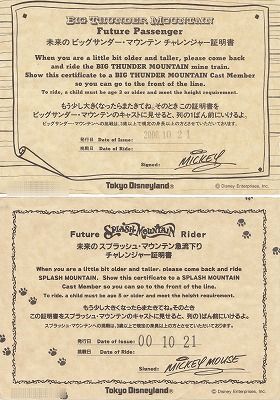 BIG THUNDER MOUNTAIN
Future Passenger
未来の ビッグサンダー・マウンテン チャレンジャー証明書
When you are a little bit older and taller, please come back
and ride the BIG THUNDER MOUNTAIN mine train.
Show this certificate to a BIG THUNDER MOUNTAIN Cast Member
so you can go to the front of the line.
To ride, a child must be age 3 or older and meet the height requirement.
もう少し大きくなったらまたきてね。そのときこの証明書を
ビッグサンダー・マウンテンのキャストに見せると、列の1ばん前にいけるよ。
ビッグサンダー・マウンテンへの乗車は、3歳以上で規定の身長以上の方とさせていただいております。
発行日 Date of Issue: 2000 10 21
挑戦日 Date of Ride:
Signed: MICKEY
Tokyo Disneyland® © Disney Enterprises, Inc.
Future SPLASH MOUNTAIN Rider
未来の スプラッシュ・マウンテン急流下り
チャレンジャー証明書
When you are a little bit older and taller, please come back and ride
SPLASH MOUNTAIN. Show this certificate to a SPLASH MOUNTAIN
Cast Member so you can go to the front of the line.
To ride, a child must be age 3 or older and meet the height requirement.
もう少し大きくなったらまたきてね。そのとき
この証明書をスプラッシュ・マウンテンのキャストに見せると、列の1ばん前にいけるよ。
スプラッシュ・マウンテンへの乗車は、3歳以上で規定の身長以上の方とさせていただいております。
発行日 Date of Issue: 00 10 21
挑戦日 Date of Ride:
Signed: MICKEY MOUSE
Tokyo Disneyland® © Disney Enterprises, Inc.